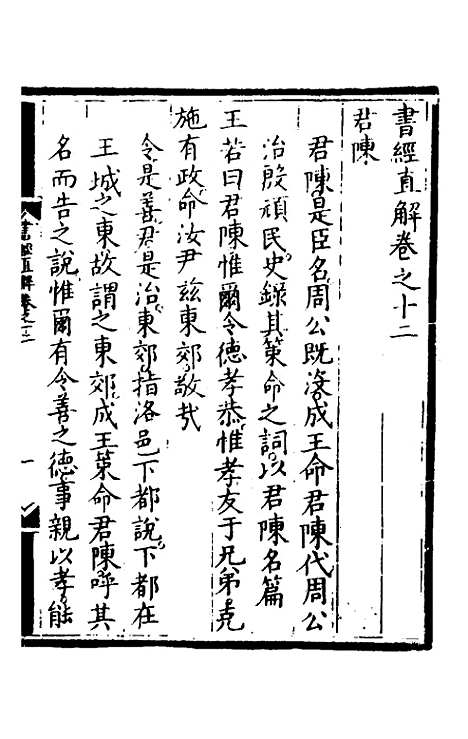 書經直解卷之十二
君陳
君陳是臣名周公既没成王命君陳代周公
治殷頑民史錄其策命之詞以君陳名篇
王若曰君陳惟爾令德孝恭惟孝友于兄弟克
施有政命汝尹兹東郊敬㢤
令是善尹是治東郊指洛邑下都說下都在
王城之東故謂之東郊成王策命君陳呼其
名而告之說惟爾有令善之德事親以孝能
書經直解卷之十二
一